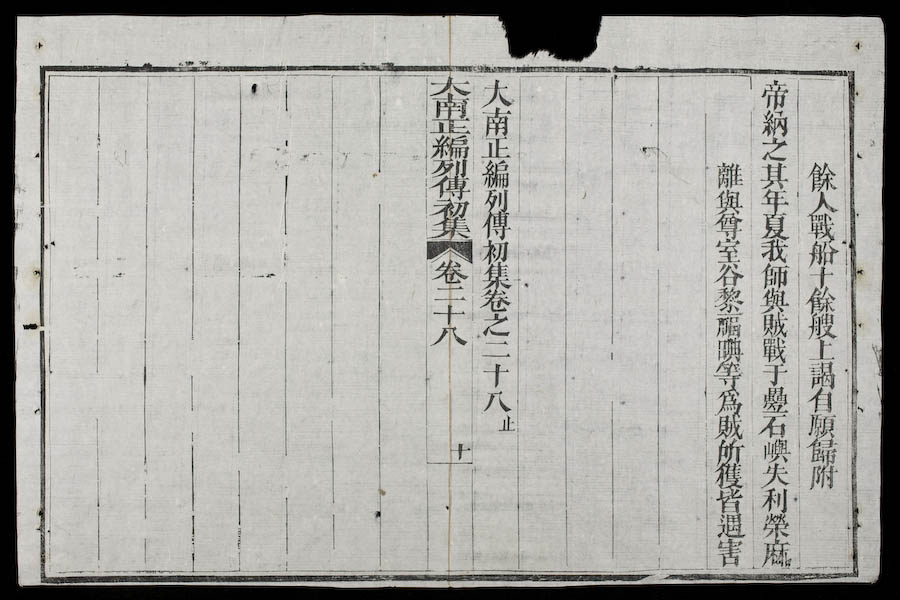 餘人戰船十餘艘上謁自願歸附
帝納之其年夏我師與賊戰于疊石嶼失利榮麻
離與尊室谷黎福晪等爲賊所獲皆遇害
大南正編列傳初集卷之二十八止
大南正編列傳初集 卷二十八 十